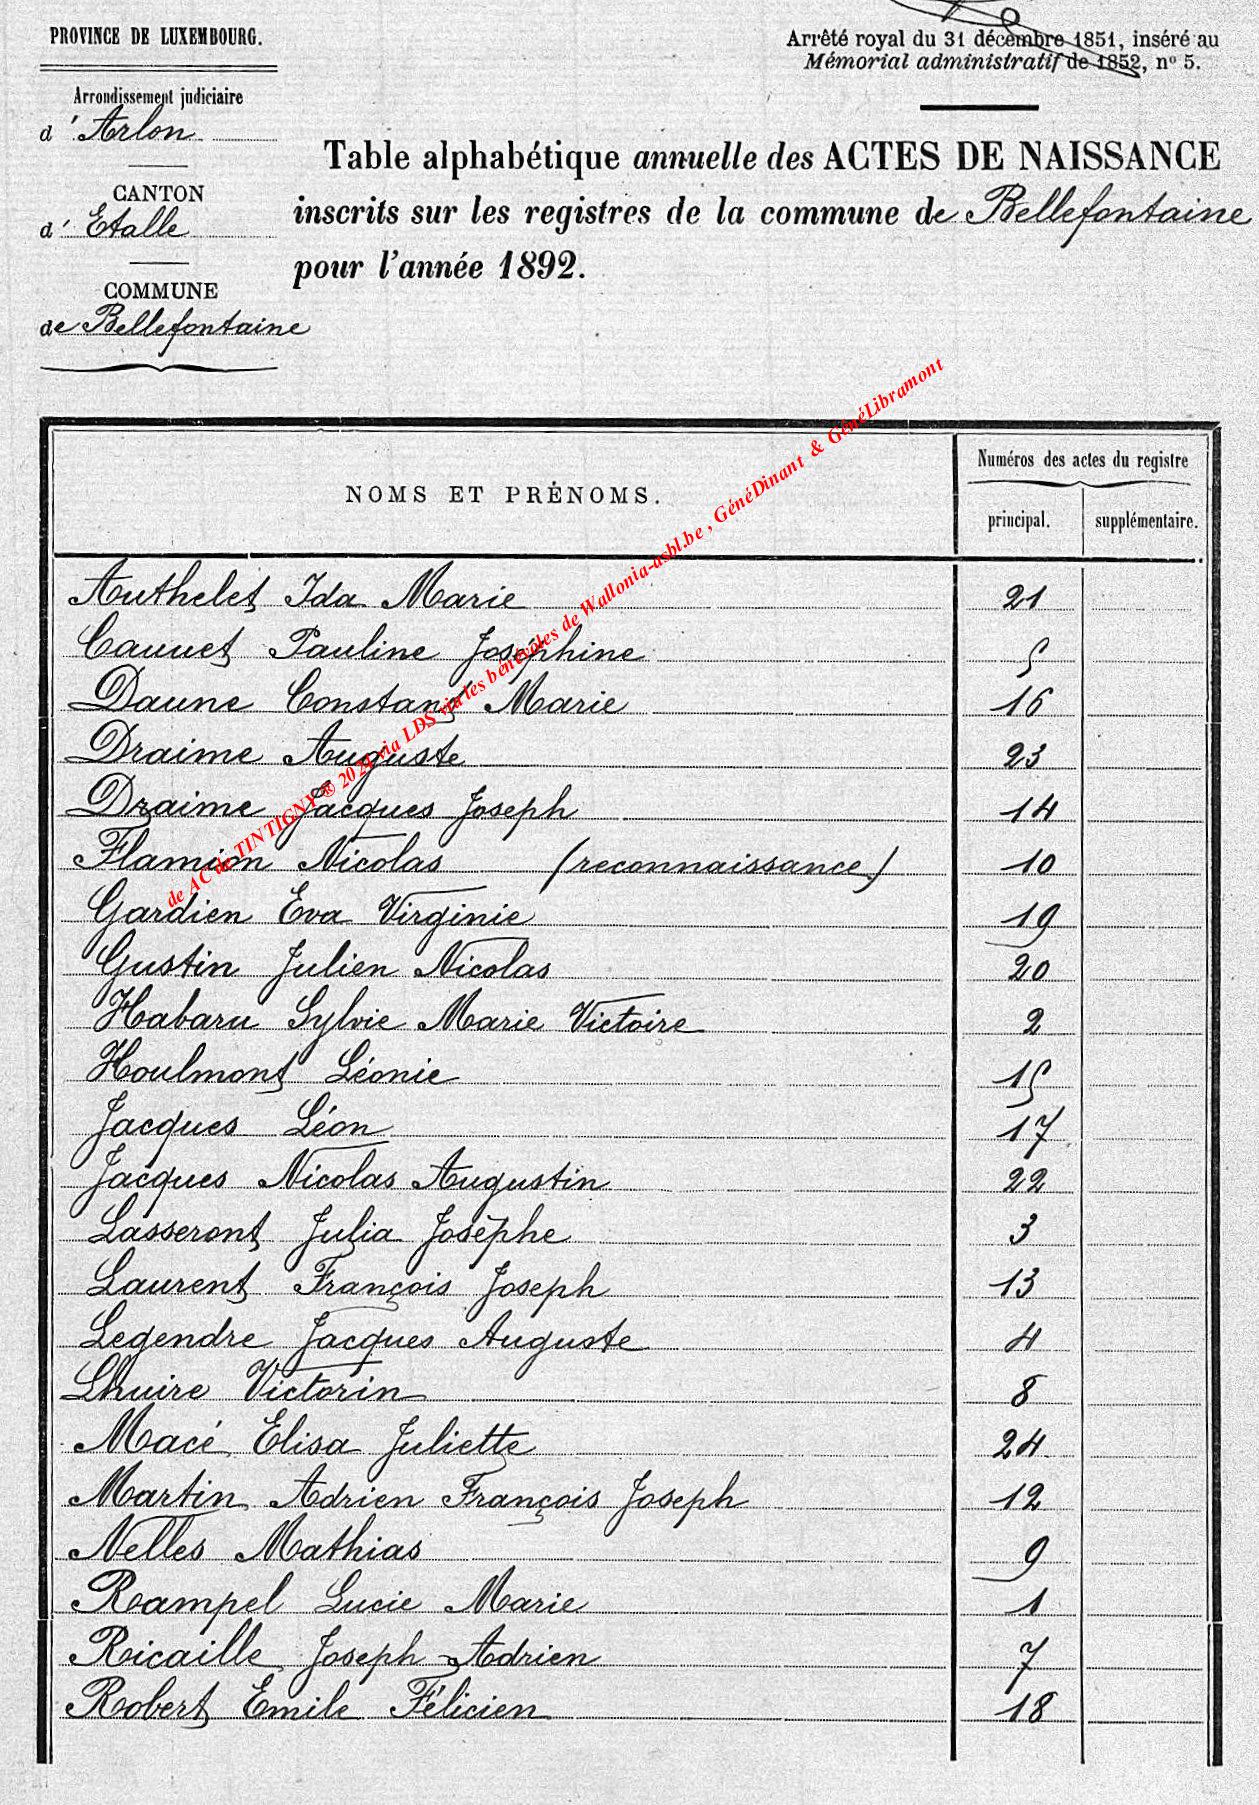 PROVINCE DE LUXEMBOURG.
Arrêté royal du 31 décembre 1851, inséré au
Mémorial administratif de 1852, nº 5.
Arrondissement judiciaire
d'Arlon
CANTON
d'Etalle
COMMUNE
de Bellefontaine
Table alphabétique annuelle des ACTES DE NAISSANCE
inscrits sur les registres de la commune de Bellefontaine
pour l'année 1892.
NOMS ET PRÉNOMS.
Numéros des actes du registre
principal. supplémentaire.
Authelet Ida Marie 21
Cauuet Pauline Joséphine 5
Daune Constant Marie 16
Draime Auguste 23
Draime Jacques Joseph 14
Flamion Nicolas (reconnaissance) 10
Gardien Eva Virginie 19
Gustin Julien Nicolas 20
Habaru Sylvie Marie Victoire 2
Houlmont Léonie 15
Jacques Léon 17
Jacques Nicolas Augustin 22
Lasseront Julia Josèphe 3
Laurent François Joseph 13
Legendre Jacques Auguste 4
Lhuire Victorin 8
Macé Elisa Juliette 24
Martin Adrien François Joseph 12
Nelles Mathias 9
Rampel Lucie Marie 1
Ricaille Joseph Adrien 7
Robert Emile Félicien 18
de AC de TINTIGNY ® 2021 via LDS via les bénévoles de Wallonia-asbl.be , GénéDinant & GénéLibramont